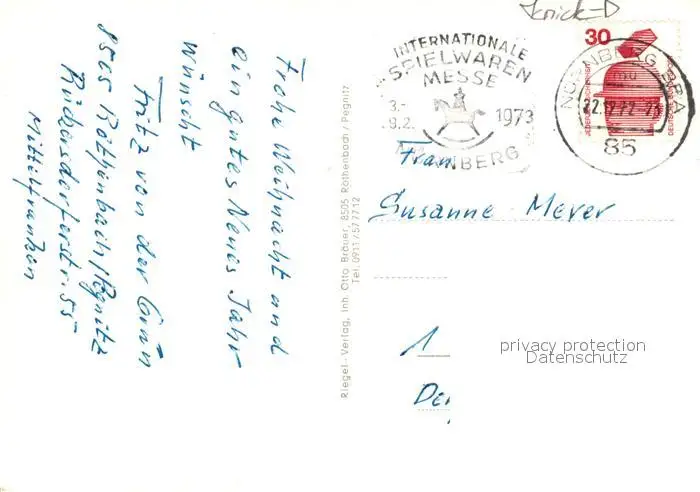 Knick-D
INTERNATIONALE
SPIELWAREN
MESSE
3.-
8.2. 1973
NÜRNBERG
30
DEUTSCHE BUNDESPOST
NÜRNBERG BPA
22.12.72
85
Frohe Weihnacht und
ein gutes Neues Jahr
wünscht
Fritz von der Grün
8505 Röthenbach/Pegnitz
Rückersdorferstr. 55
Mittelfranken
Riegel-Verlag, Inh. Otto Bräuer, 8505 Röthenbach / Pegnitz
Tel. 0911/577712
Frau
Susanne Meyer
1
privacy protection
Datenschutz